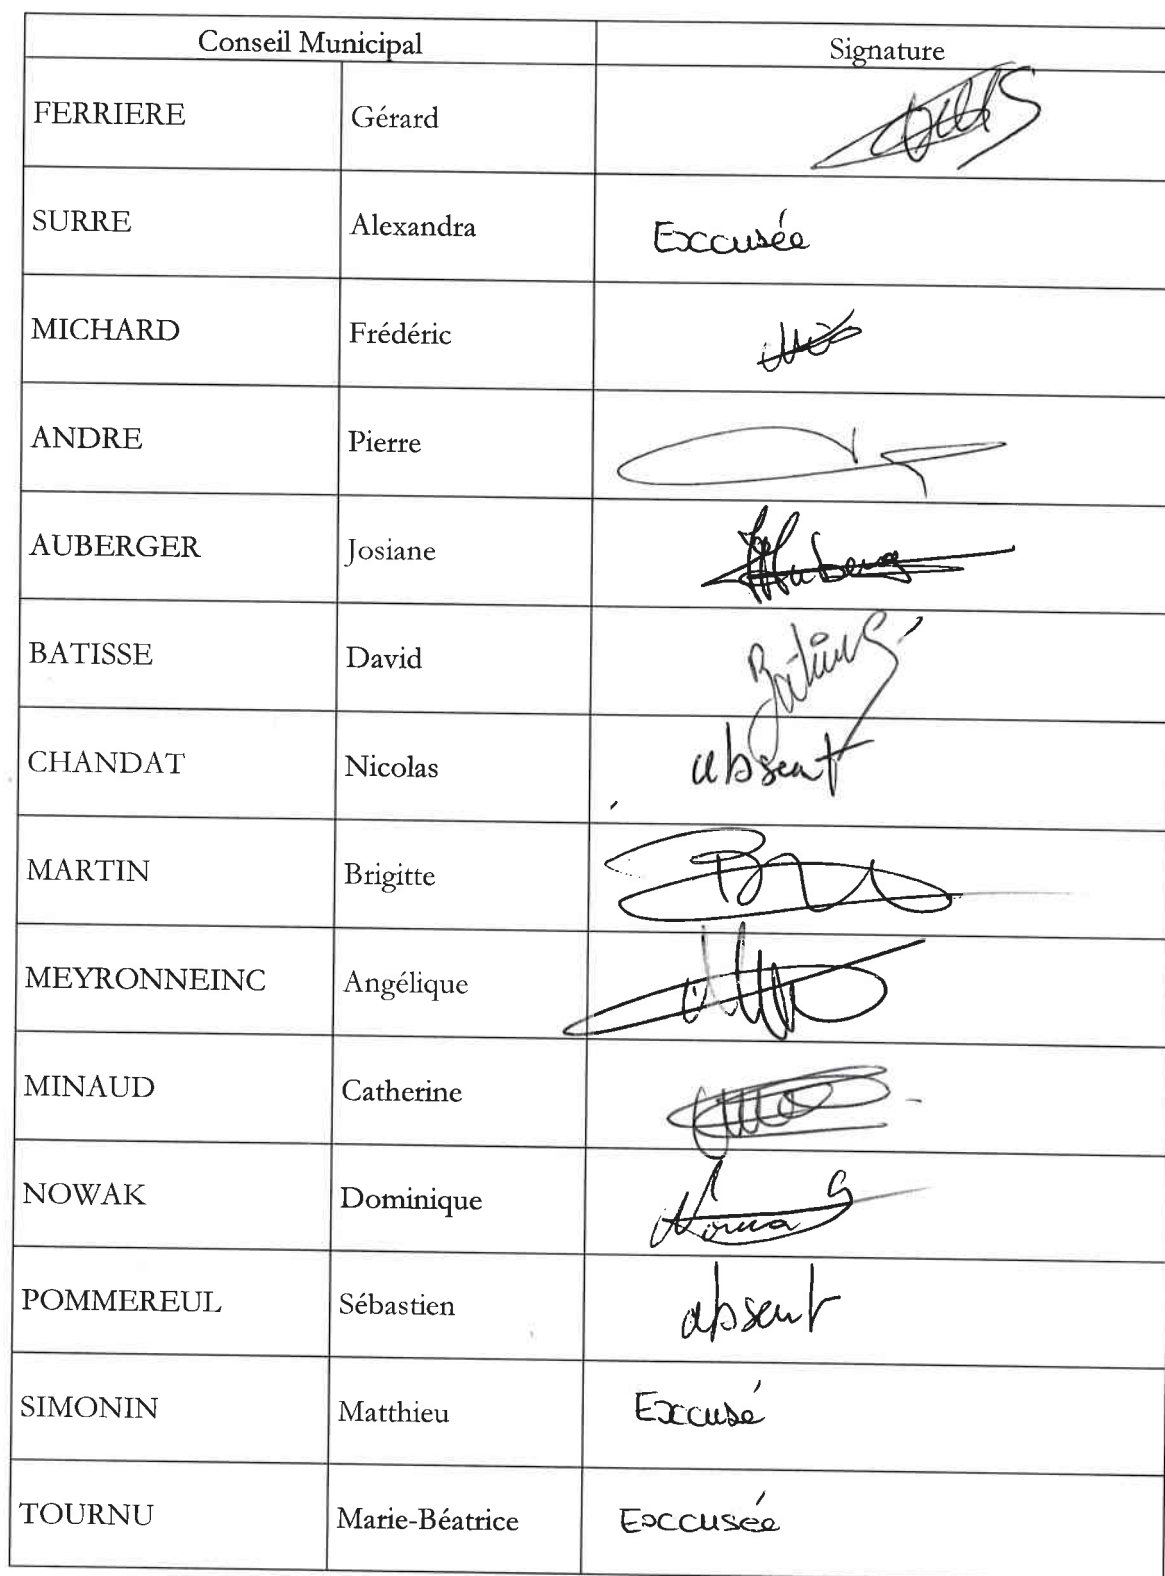 Conseil Municipal Signature
FERRIERE Gérard
SURRE Alexandra Excusée
MICHARD Frédéric
ANDRE Pierre
AUBERGER Josiane
BATISSE David
CHANDAT Nicolas absent
MARTIN Brigitte
MEYRONNEINC Angélique
MINAUD Catherine
NOWAK Dominique
POMMEREUL Sébastien absent
SIMONIN Matthieu Excusé
TOURNU Marie-Béatrice Excusée